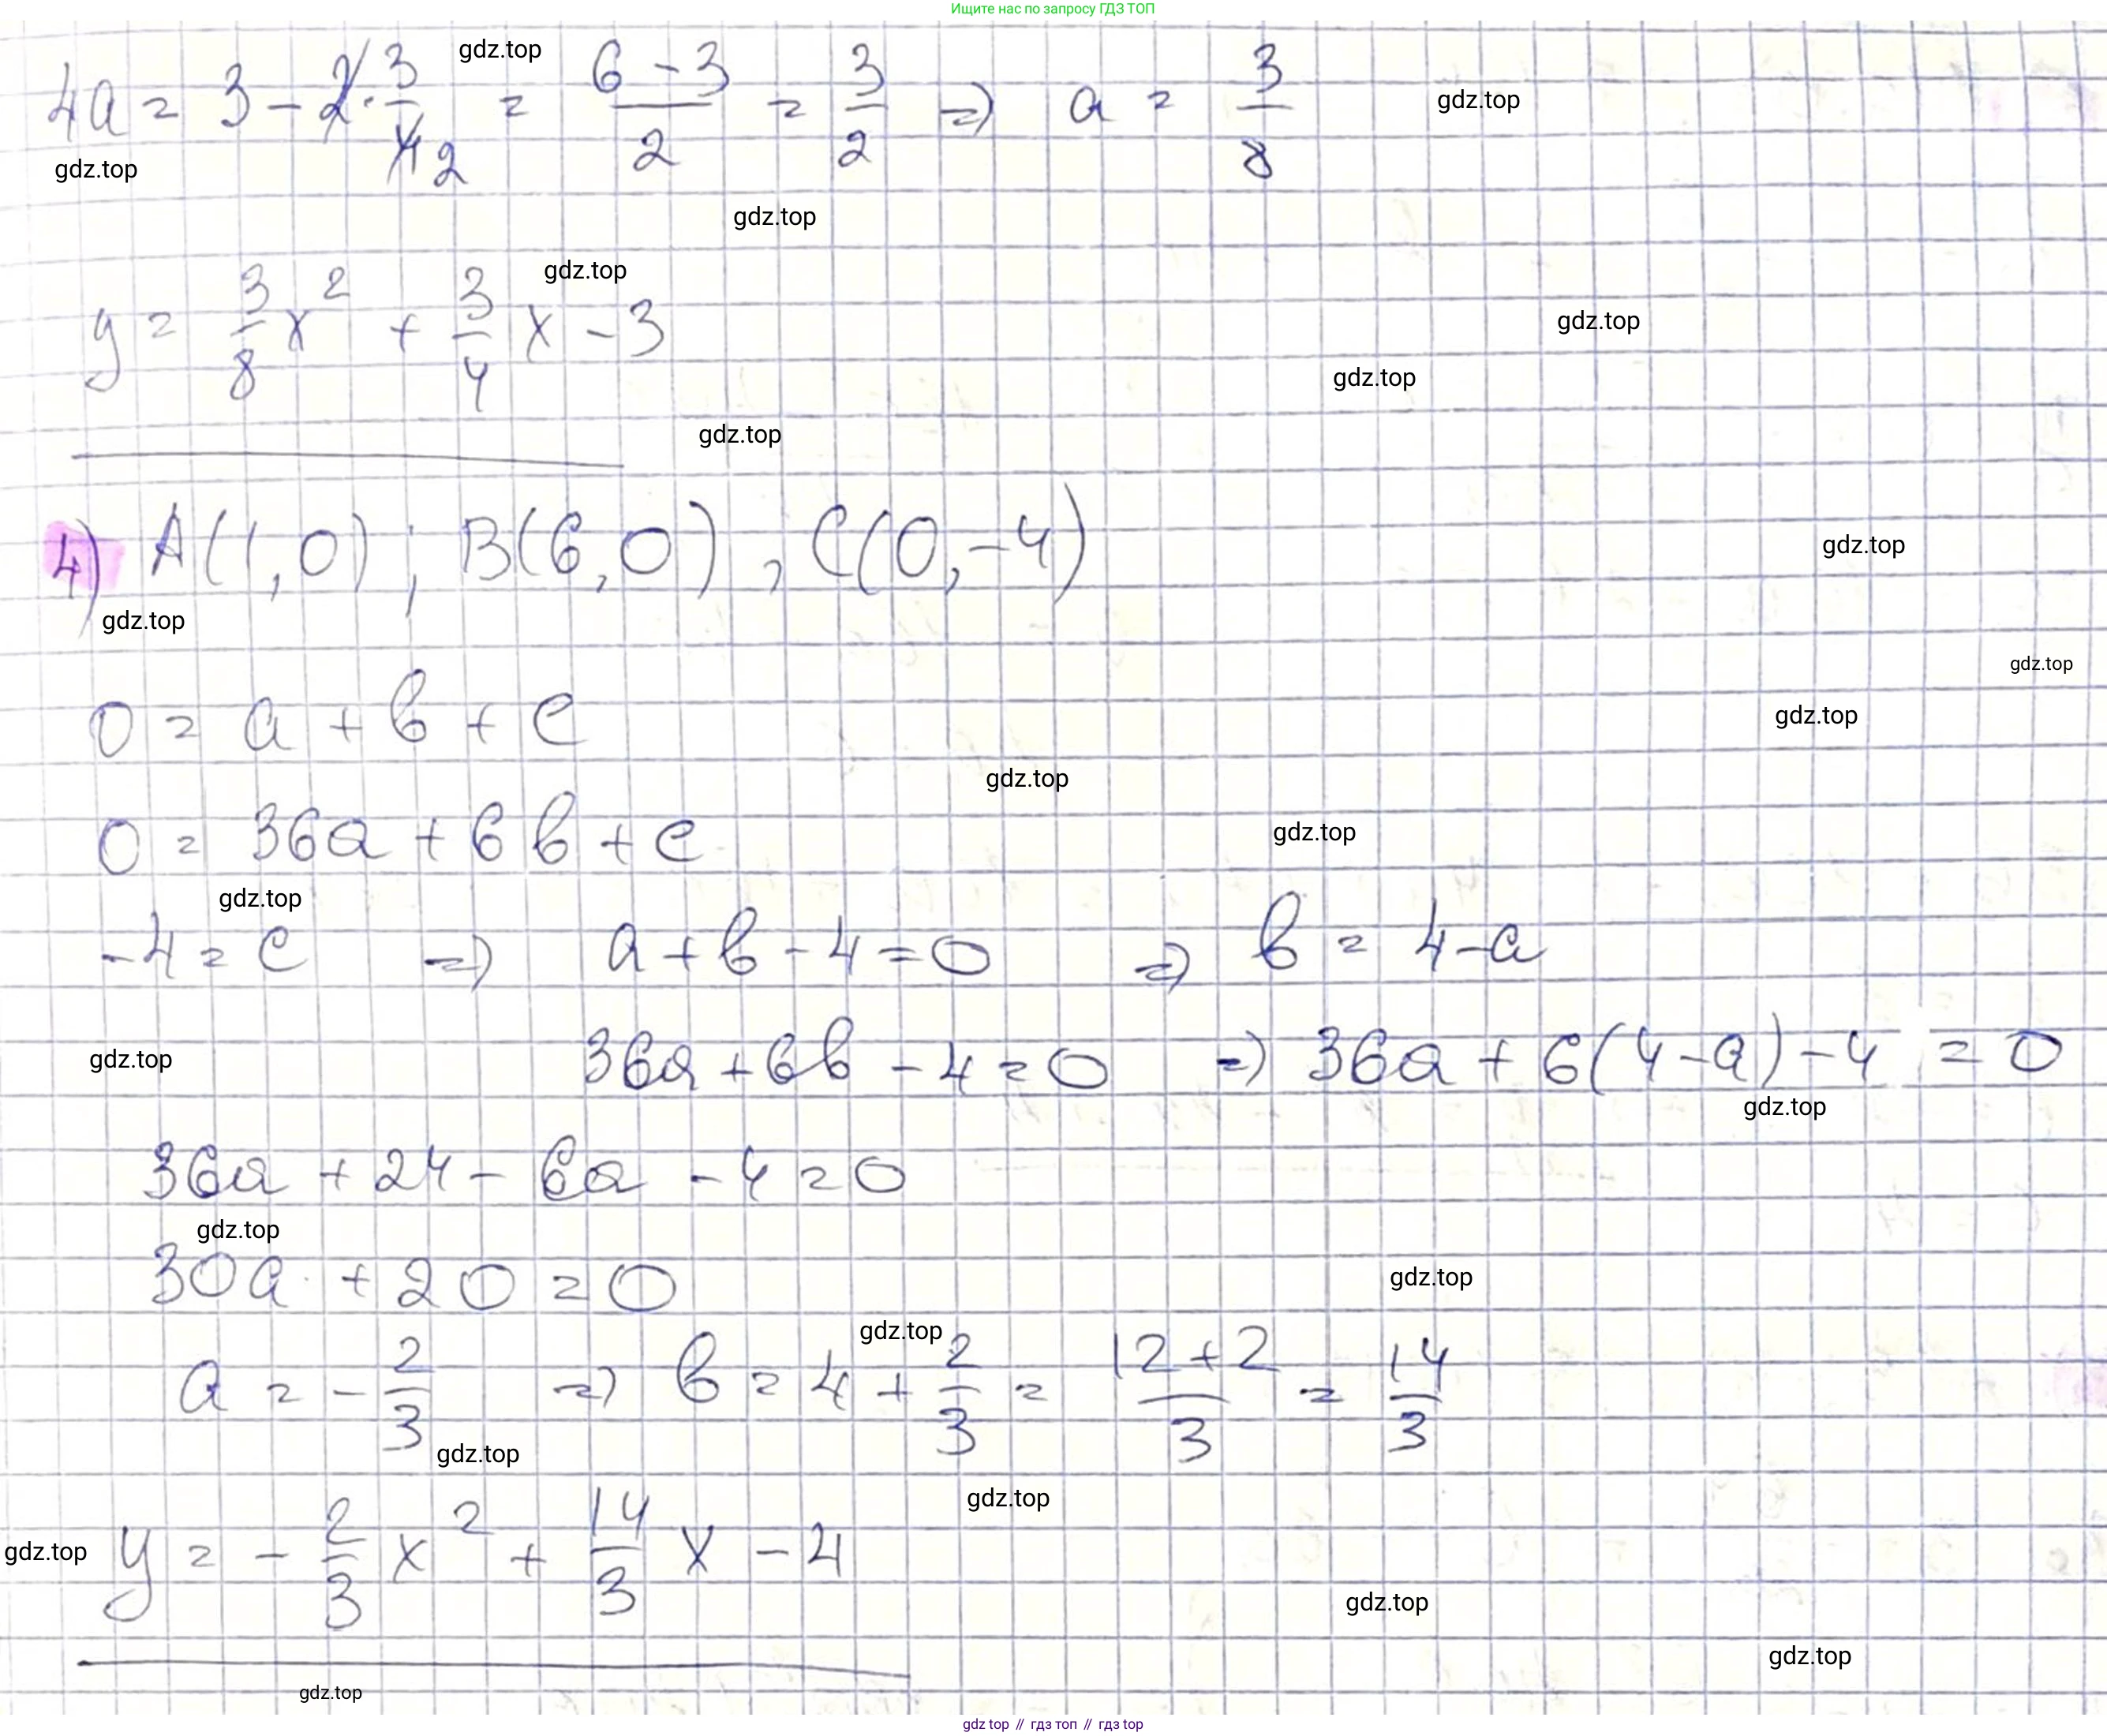 Ищите нас по запросу ГДЗ ТОП
gdz.top
4a = 3 - 2 · 3/4 2 = (6 - 3)/2 = 3/2 => a = 3/8
gdz.top
gdz.top
gdz.top
gdz.top
y = 3/8 x² + 3/4 x - 3
gdz.top
gdz.top
gdz.top
4) A(1,0); B(6,0), C(0,-4)
gdz.top
gdz.top
gdz.top
0 = a + в + c
gdz.top
gdz.top
0 = 36a + 6в + c
gdz.top
gdz.top
-4 = c => a + в - 4 = 0 => в = 4 - a
gdz.top
36a + 6в - 4 = 0 => 36a + 6(4 - a) - 4 = 0
gdz.top
36a + 24 - 6a - 4 = 0
gdz.top
30a + 20 = 0
gdz.top
gdz.top
a = - 2/3 => в = 4 + 2/3 = (12 + 2)/3 = 14/3
gdz.top
gdz.top
gdz.top
y = - 2/3 x² + 14/3 x - 4
gdz.top
gdz.top
gdz.top
gdz top // гдз топ // гдз top